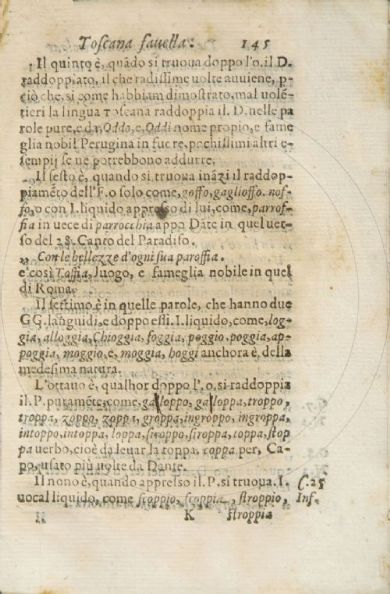 Toscana fauella. 145
Il quinto è, quãdo si truoua doppo l'o. il D.
raddoppiato, il che radissime uolte auuiene, p-
ciò che, si come habbiam dimostrato, mal uolẽ-
tieri la lingua Toscana raddoppia il D. nelle pa
role pure, e da, Oddo, e, Oddi nome propio, e fame
glia nobil Perugina in fuore, pochissimi altri e-
sempij se ne potrebbono addurre.
Il sesto è, quando si truoua inãzi il raddop-
piamẽto dell'F. o solo come, goffo, gaglioffo. nos-
fo, o con I. liquido appresso di lui, come, paroffia
fia in uece di parrocchia appo Dãte in quel uer-
so del 28. Canto del Paradiso.
Con le bellezze d'ogni sua paroffia.
e così Toffia, luogo, e fameglia nobile in quel
di Roma.
Il settimo è in quelle parole, che hanno due
GG. lãguidi, e doppo essi. I. liquido, come, log-
gia, alloggia, Chioggia, foggia, peggio, poggia, ap-
poggia, moggio, e, moggia, hoggi anchora è, della
medesima natura.
L'ottauo è, qualhor doppo l'o, si raddoppia
il. P. puramẽte, come, galloppo, galloppa, troppo,
troppa, zoppo, zoppa, groppa, ingroppo, ingroppa,
intoppo, intoppa, loppa, siroppo, siroppa, toppa, stop
pa uerbo, cioè da leuar la toppa, coppa per, Ca-
po, usato più uolte da Dante.
Il nono è, quando appresso il. P. si truoua. I. C. 25
uocal liquido, come scoppio, scoppia, stroppio, Inf.
K stroppia